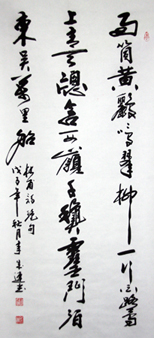 両箇黄鸝鳴翠柳一行白鷺
上青天窗含西嶺千秋雪門泊
東吴萬里船
杜甫詩绝句
戊子年秋月